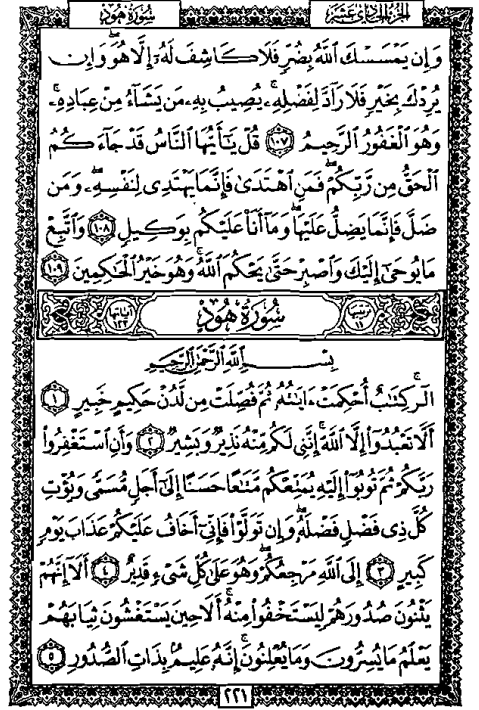 الجزء الحادي عشر
سورة هود
وَإِن يَمْسَسْكَ ٱللَّهُ بِضُرٍّ فَلَا كَاشِفَ لَهُۥٓ إِلَّا هُوَ ۖ وَإِن
يُرِدْكَ بِخَيْرٍ فَلَا رَآدَّ لِفَضْلِهِۦ ۚ يُصِيبُ بِهِۦ مَن يَشَآءُ مِنْ عِبَادِهِۦ ۚ
وَهُوَ ٱلْغَفُورُ ٱلرَّحِيمُ ١٠٧ قُلْ يَـٰٓأَيُّهَا ٱلنَّاسُ قَدْ جَآءَكُمُ
ٱلْحَقُّ مِن رَّبِّكُمْ ۖ فَمَنِ ٱهْتَدَىٰ فَإِنَّمَا يَهْتَدِى لِنَفْسِهِۦ ۖ وَمَن
ضَلَّ فَإِنَّمَا يَضِلُّ عَلَيْهَا ۖ وَمَآ أَنَا۠ عَلَيْكُم بِوَكِيلٍ ١٠٨ وَٱتَّبِعْ
مَا يُوحَىٰٓ إِلَيْكَ وَٱصْبِرْ حَتَّىٰ يَحْكُمَ ٱللَّهُ ۚ وَهُوَ خَيْرُ ٱلْحَـٰكِمِينَ ١٠٩
ترتيبها ١١ سُورَةُ هُودٍ آياتها ١٢٣
بِسْمِ ٱللَّهِ ٱلرَّحْمَـٰنِ ٱلرَّحِيمِ
الٓر ۚ كِتَـٰبٌ أُحْكِمَتْ ءَايَـٰتُهُۥ ثُمَّ فُصِّلَتْ مِن لَّدُنْ حَكِيمٍ خَبِيرٍ ١
أَلَّا تَعْبُدُوٓا۟ إِلَّا ٱللَّهَ ۚ إِنَّنِى لَكُم مِّنْهُ نَذِيرٌ وَبَشِيرٌ ٢ وَأَنِ ٱسْتَغْفِرُوا۟
رَبَّكُمْ ثُمَّ تُوبُوٓا۟ إِلَيْهِ يُمَتِّعْكُم مَّتَـٰعًا حَسَنًا إِلَىٰٓ أَجَلٍ مُّسَمًّى وَيُؤْتِ
كُلَّ ذِى فَضْلٍ فَضْلَهُۥ ۖ وَإِن تَوَلَّوْا۟ فَإِنِّىٓ أَخَافُ عَلَيْكُمْ عَذَابَ يَوْمٍ
كَبِيرٍ ٣ إِلَى ٱللَّهِ مَرْجِعُكُمْ ۖ وَهُوَ عَلَىٰ كُلِّ شَىْءٍ قَدِيرٌ ٤ أَلَآ إِنَّهُمْ
يَثْنُونَ صُدُورَهُمْ لِيَسْتَخْفُوا۟ مِنْهُ ۚ أَلَا حِينَ يَسْتَغْشُونَ ثِيَابَهُمْ
يَعْلَمُ مَا يُسِرُّونَ وَمَا يُعْلِنُونَ ۚ إِنَّهُۥ عَلِيمٌۢ بِذَاتِ ٱلصُّدُورِ ٥
٢٢١